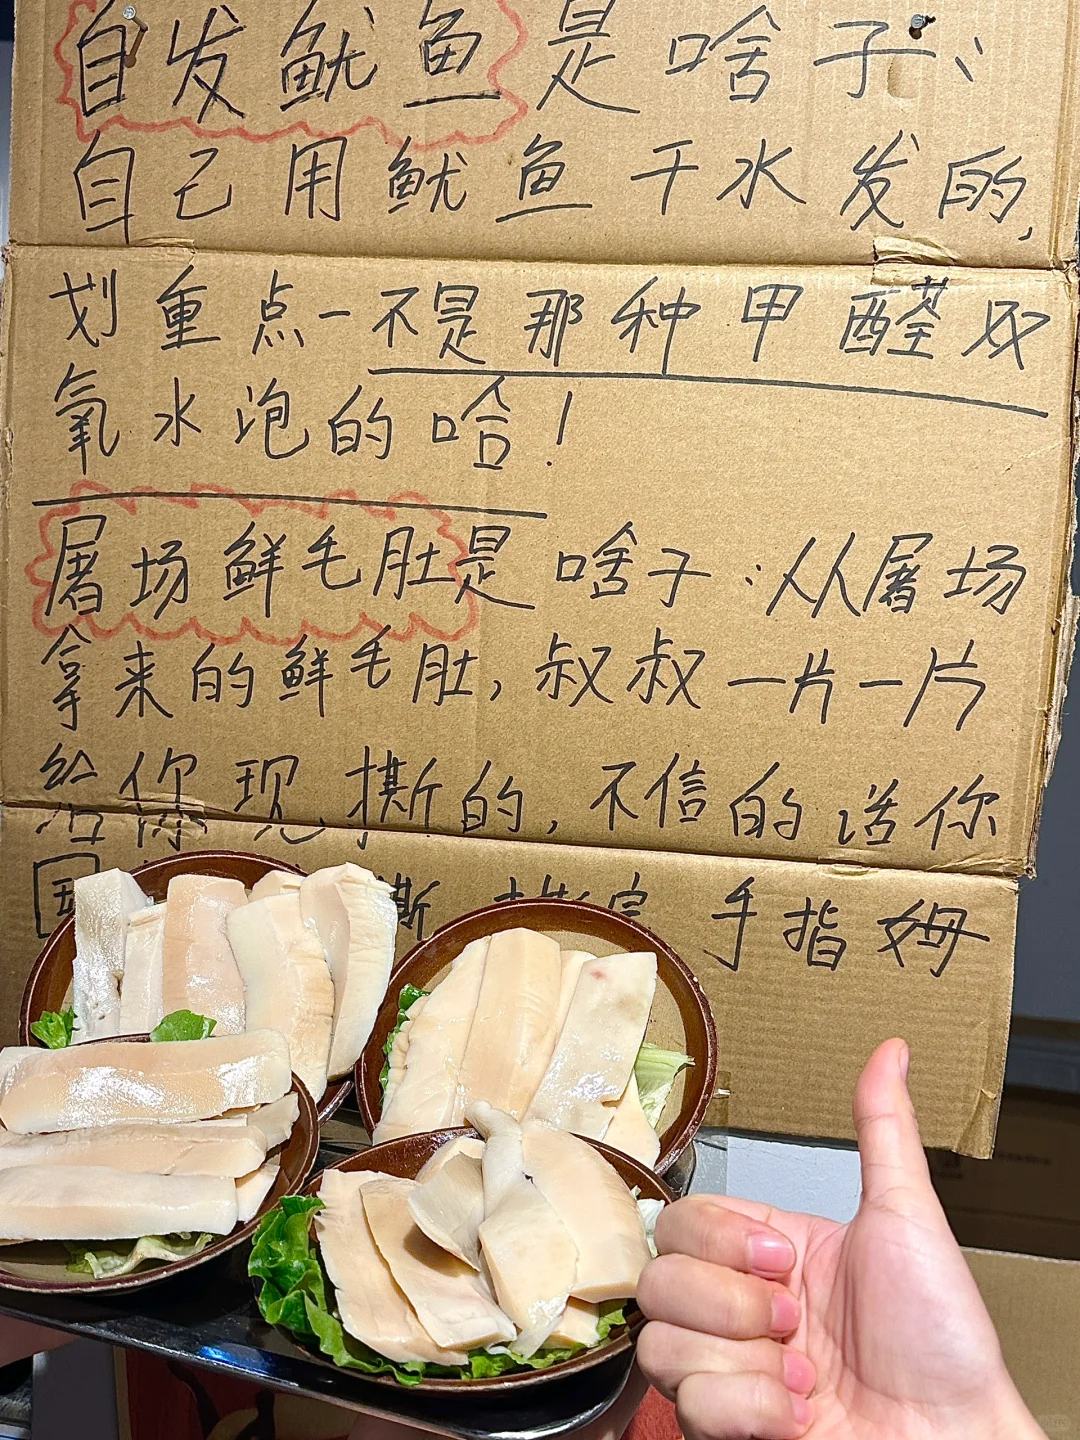 自发鱿鱼是啥子：
自己用鱿鱼干水发的,
划重点-不是那种甲醛双
氧水泡的哈!
屠场鲜毛肚是啥子:从屠场
拿来的鲜毛肚,叔叔一片一片
给你现撕的,不信的话你
手指姆